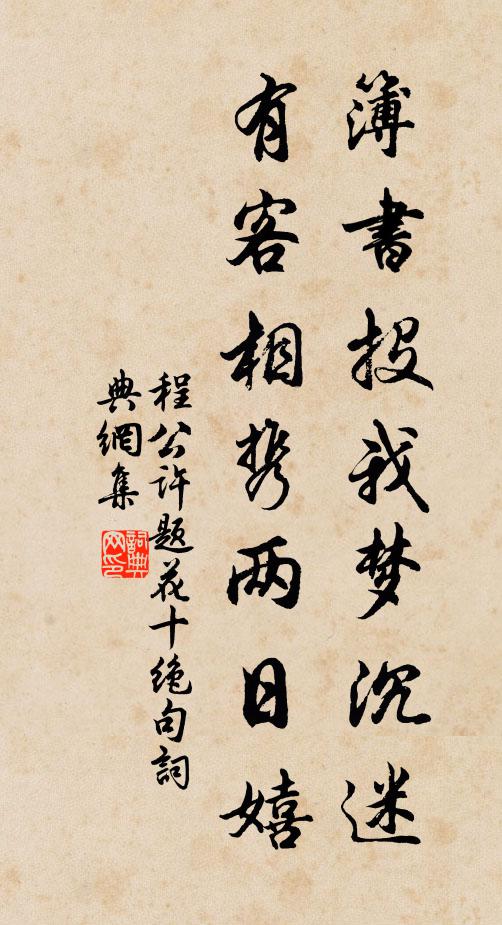 簿書投我梦沉迷
有客相携两日嬉
程公许题花十绝句詞
典網集
詞典网印